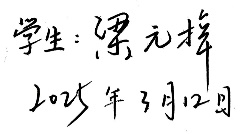 学生：梁元梓
2025年3月12日